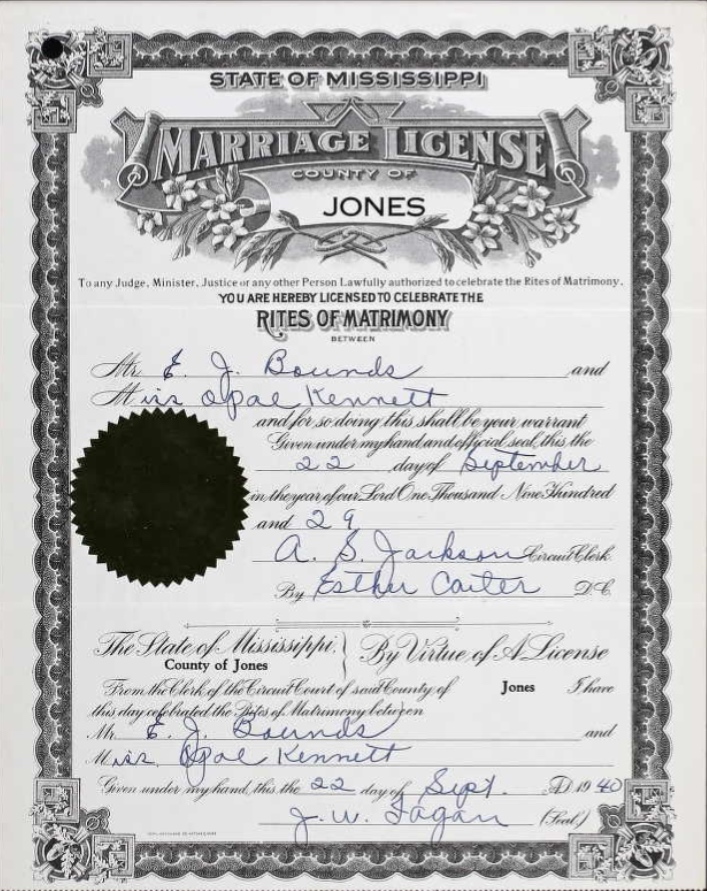 STATE OF MISSISSIPPI
MARRIAGE LICENSE
COUNTY OF
JONES
To any Judge, Minister, Justice or any other Person Lawfully authorized to celebrate the Rites of Matrimony.
YOU ARE HEREBY LICENSED TO CELEBRATE THE
RITES OF MATRIMONY
BETWEEN
Mr. E. J. Bounds and
Miss Opal Kennett
and for so doing this shall be your warrant
Given under my hand and official seal, this the
22 day of September
in the year of our Lord One Thousand Nine Hundred
and 29
A. S. Jackson Circuit Clerk
By Esther Carter D.C.
The State of Mississippi, By Virtue of A License
County of Jones
From the Clerk of the Circuit Court of said County of Jones I have
this day celebrated the Rites of Matrimony between
Mr. E. J. Bounds and
Miss Opal Kennett
Given under my hand, this the 22 day of Sept. A.D. 1940
J. W. Fagan (Seal)